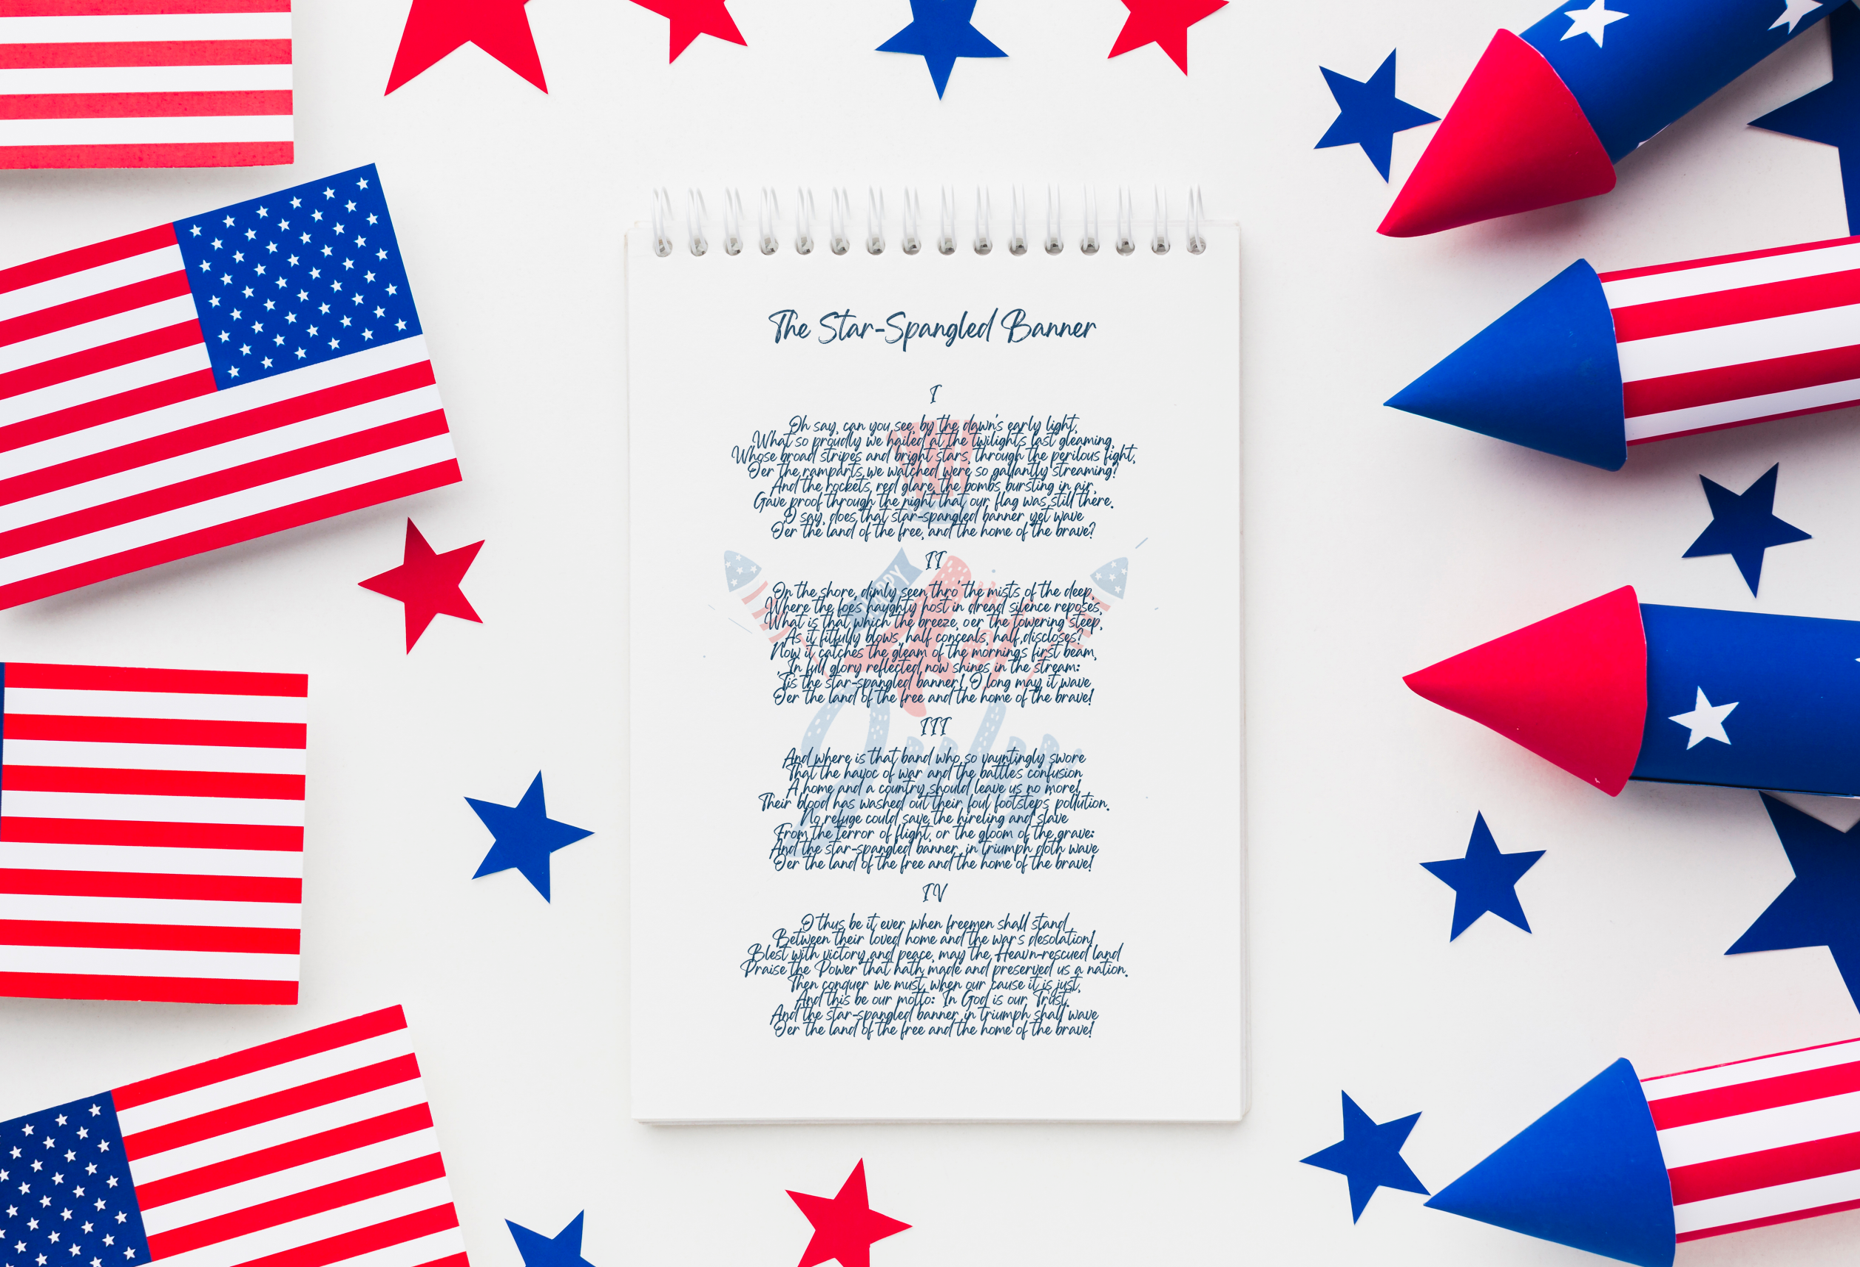 The Star-Spangled Banner
I
Oh say, can you see, by the dawn's early light,
What so proudly we hailed at the twilight's last gleaming,
Whose broad stripes and bright stars, through the perilous fight,
O'er the ramparts we watched were so gallantly streaming?
And the rockets red glare, the bombs bursting in air,
Gave proof through the night that our flag was still there.
O say, does that star-spangled banner yet wave
O'er the land of the free, and the home of the brave?
II
On the shore, dimly seen thro' the mists of the deep,
Where the foes haughty host in dread silence reposes,
What is that which the breeze, o'er the towering steep,
As it fitfully blows, half conceals, half discloses?
Now it catches the gleam of the mornings first beam,
In full glory reflected, now shines in the stream:
'Tis the star-spangled banner! O long may it wave
O'er the land of the free and the home of the brave!
III
And where is that band who so vauntingly swore
That the havoc of war and the battles confusion
A home and a country should leave us no more!
Their blood has washed out their foul footsteps pollution.
No refuge could save the hireling and slave
From the terror of flight, or the gloom of the grave:
And the star-spangled banner in triumph doth wave
O'er the land of the free and the home of the brave!
IV
O thus be it ever when freemen shall stand
Between their loved home and the war's desolation!
Blest with victory and peace, may the Heav'n-rescued land
Praise the Power that hath made and preserved us a nation.
Then conquer we must, when our cause it is just,
And this be our motto: In God is our Trust.
And the star-spangled banner in triumph shall wave
O'er the land of the free and the home of the brave!
HAPPY
July